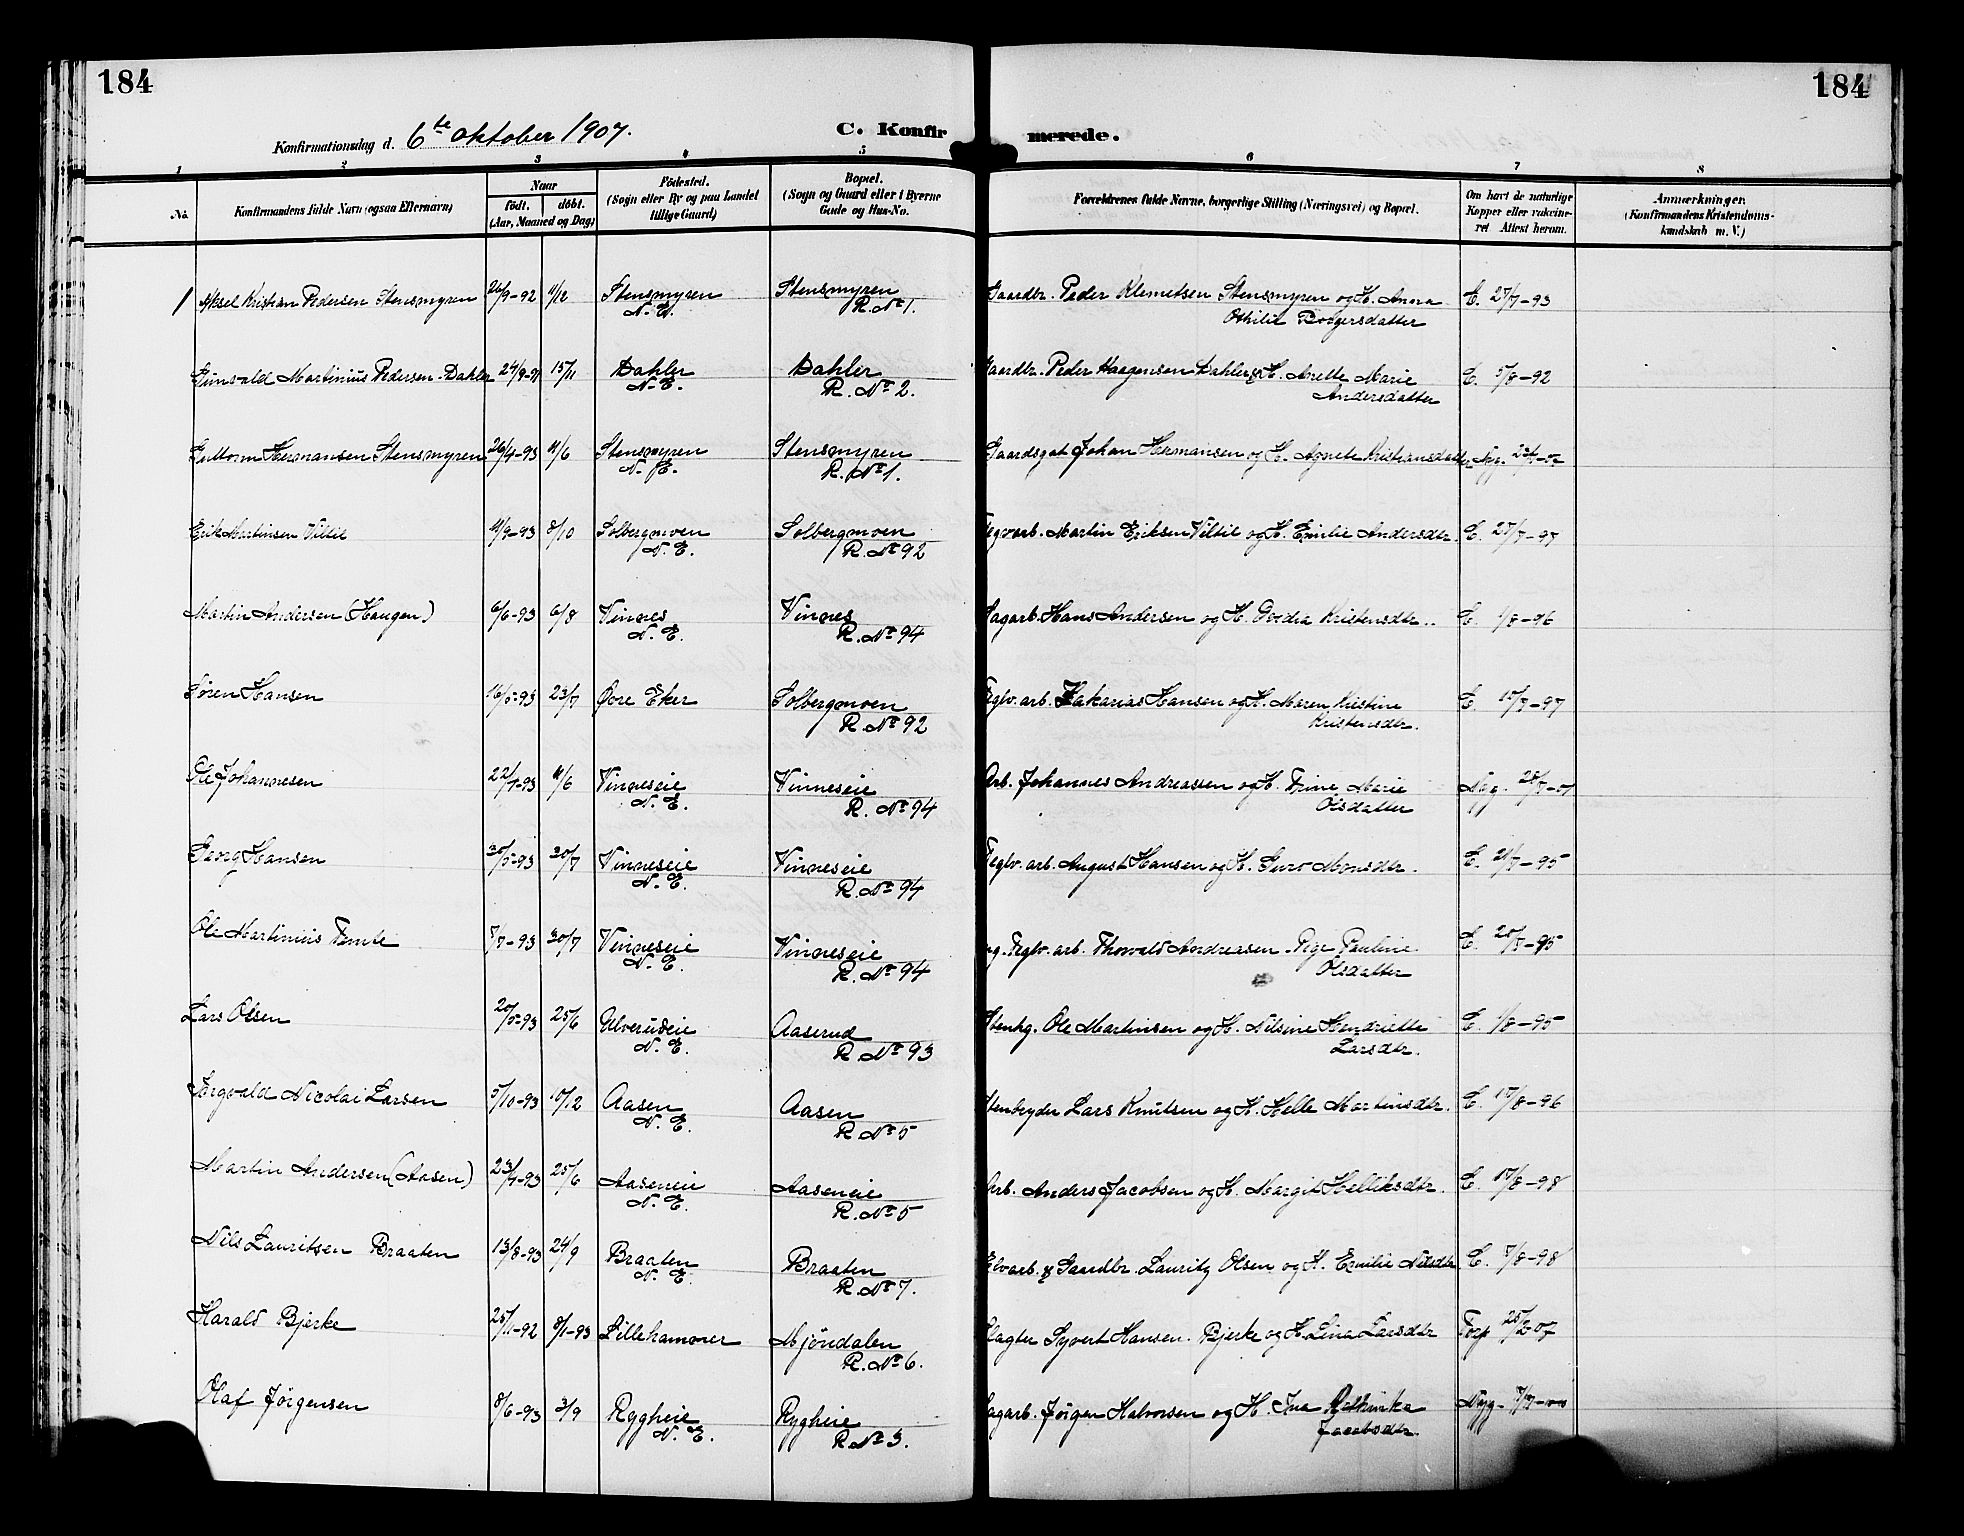 184
184
Konfirmationsdag d. 6te oktober 1907.
C. Konfirmerede.
1 2 3 4 5 6 7 8
No. Konfirmandens fulde Navn (ogsaa Efternavn) Naar født. døbt. (Aar, Maaned og Dag) Fødested. (Sogn eller By og paa Landet tillige Gaard) Bopæl. (Sogn og Gaard eller i Byerne Gade og Hus-No. Forældrenes fulde Navne, borgerlige Stilling (Næringsvei) og Bopæl. Om havt de naturlige Kopper eller vakcineret Attest herom. Anmærkninger. (Konfirmandens Kristendomskundskab m. V.)
1 Aksel Kristian Pedersen Stensmyren 26/9-92 11/12 Stensmyren Stensmyren Gaardbr. Peder Klemetsen Stensmyren og H. Anna E. 27/7-93
N. E. R. No 1. Othilie Borgersdatter
Gunvald Martinius Pedersen Dahler 24/9-91 15/11 Dahler Dahler Gaardbr. Peder Haagensen Dahler & H. Anette Marie E. 5/8-92
N. E. R. No 2. Andersdatter
Guttorm Hermansen Stensmyren 26/4-93 11/6 Stensmyren Stensmyren Gaardsgut Johan Hermansen og H. Agnete Kristiansdatter
N. E. R. No 1.
Erik Martinsen Viltil 11/9-93 8/10 Solbergmoen Solbergmoen Teglvarb. Martin Eriksen Viltil og H. Emilie Andersdtr. E. 27/7-97
N. E. R. No 92
Martin Andersen (Haugen) 6/6-93 6/8 Vinnes Vinnes Sagarb. Hans Andersen og H. Kristensdtr. E. 1/8-96
N. E. R. No 94
Søren Hansen 16/5-93 23/7 Øvre Eker Solbergmoen Teglv. arb. Zakarias Hansen og H. Maren Kristine E. 15/7-97
R. No 92 Kristensdtr.
Ole Johannesen 22/4-93 11/6 Vinneseie Vinneseie Arb. Johannes Andreassen og H. Trine Marie Nyg. 28/7-01
N. E. R. No 94 Olsdatter
Georg Hansen 30/5-93 30/7 Vinneseie Vinneseie Teglv. arb. August Hansen og H. Guro Monsdtr. E. 21/7-95
N. E. R. No 94
Ole Martinius Tomte 7/7-93 30/7 Vinneseie Vinneseie Ug. Teglv. arb. Thorvald Andreasen. Pige Pauline E. 20/8-95
N. E. R. No 94 Olsdatter
Lars Olsen 20/5-93 25/6 Ulverudeie Aaserud Stenhg. Ole Martinsen og H. Nilsine Henriette E. 1/8-95
N. E. R. No 93 Larsdtr.
Torgvald Nicolai Larsen 5/10-93 10/12 Aasen Aasen Stenbryder Lars Knutsen og H. Helle Martinsdtr. E. 15/8-96
N. E. R. No 5
Martin Andersen (Aasen) 23/4-93 25/6 Aaseneie Aaseneie Arb. Anders Jacobsen og H. Margit Helliksdtr. E. 17/8-98
N. E. R. No 5
Nils Lauritsen Braaten 13/8-93 24/9 Braaten Braaten Elvarb. & Gaardbr. Lauritz Olsen og H. Emilie Nilsdtr E. 7/8-98
N. E. R. No 7.
Harald Bjerke 25/11-92 8/1-93 Lillehammer Mjöndalen Slagter Syvert Hansen Bjerke og H. Lina Larsdtr Torp 25/2-07
R. No 6.
Olaf Jørgensen 8/6-93 3/9 Ryggheie Rygheie Sagarb. Jørgen Halvorsen og H. Ina
N. E. R. No 3. Jacobsdtr.